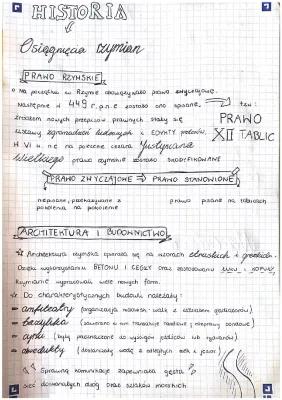 HISTORIA
Osiągnięcia rzymian
PRAWO RZYMSKIE
Na początku w Rzymie obowiązywało prawo zwyczajowe.
Następnie w 449 r. p.n.e zostało ono spisane, tzw:
źródłem nowych przepisów prawnych stały się
PRAWO
ustawy zgromadzeń ludowych i EDYKTY pretorów,
XII TABLIC
W VI w. ne na polecenie cesarza Justyniana
Wielkiego prawo rzymskie zostało skodyfikowane
PRAWO ZWYCZAJOWE ⇒ PRAWO STANOWIONE
niepisane, przekazywane z
pokolenia na pokolenie
prawo pisane na tablicach
ARCHITEKTURA I BUDOWNICTWO
Architektura rzymska opierała się na wzorcach etruskich i greckich.
Dzięki wykorzystaniu BETONU I CEGŁY oraz zastosowaniu ŁUKU i KOPUŁY,
Rzymianie wypracowali wiele nowych form.
Do charakterystycznych budowli należały:
amfiteatry (organizacja widowisk - walk z udziałem gladiatorów)
bazyliki (zawierano w nich transakcje handlowe i rozprawy sądowe)
cyrki (były przeznaczone do wyścigów rydwanów)
akwedukty (dostarczały wodę z odległych rzek i jezior)
Sprawną komunikację zapewniała gęsta
sieć doskonałych dróg oraz szlaków morskich